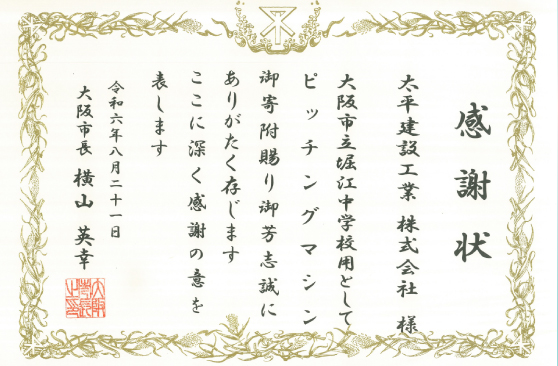 感謝状
太平建設工業 株式会社 様
大阪市立堀江中学校用として
ピッチングマシン
御寄附賜り御芳志誠に
ありがたく存じます
ここに深く感謝の意を
表します
令和六年八月二十一日
大阪市長 横山 英幸